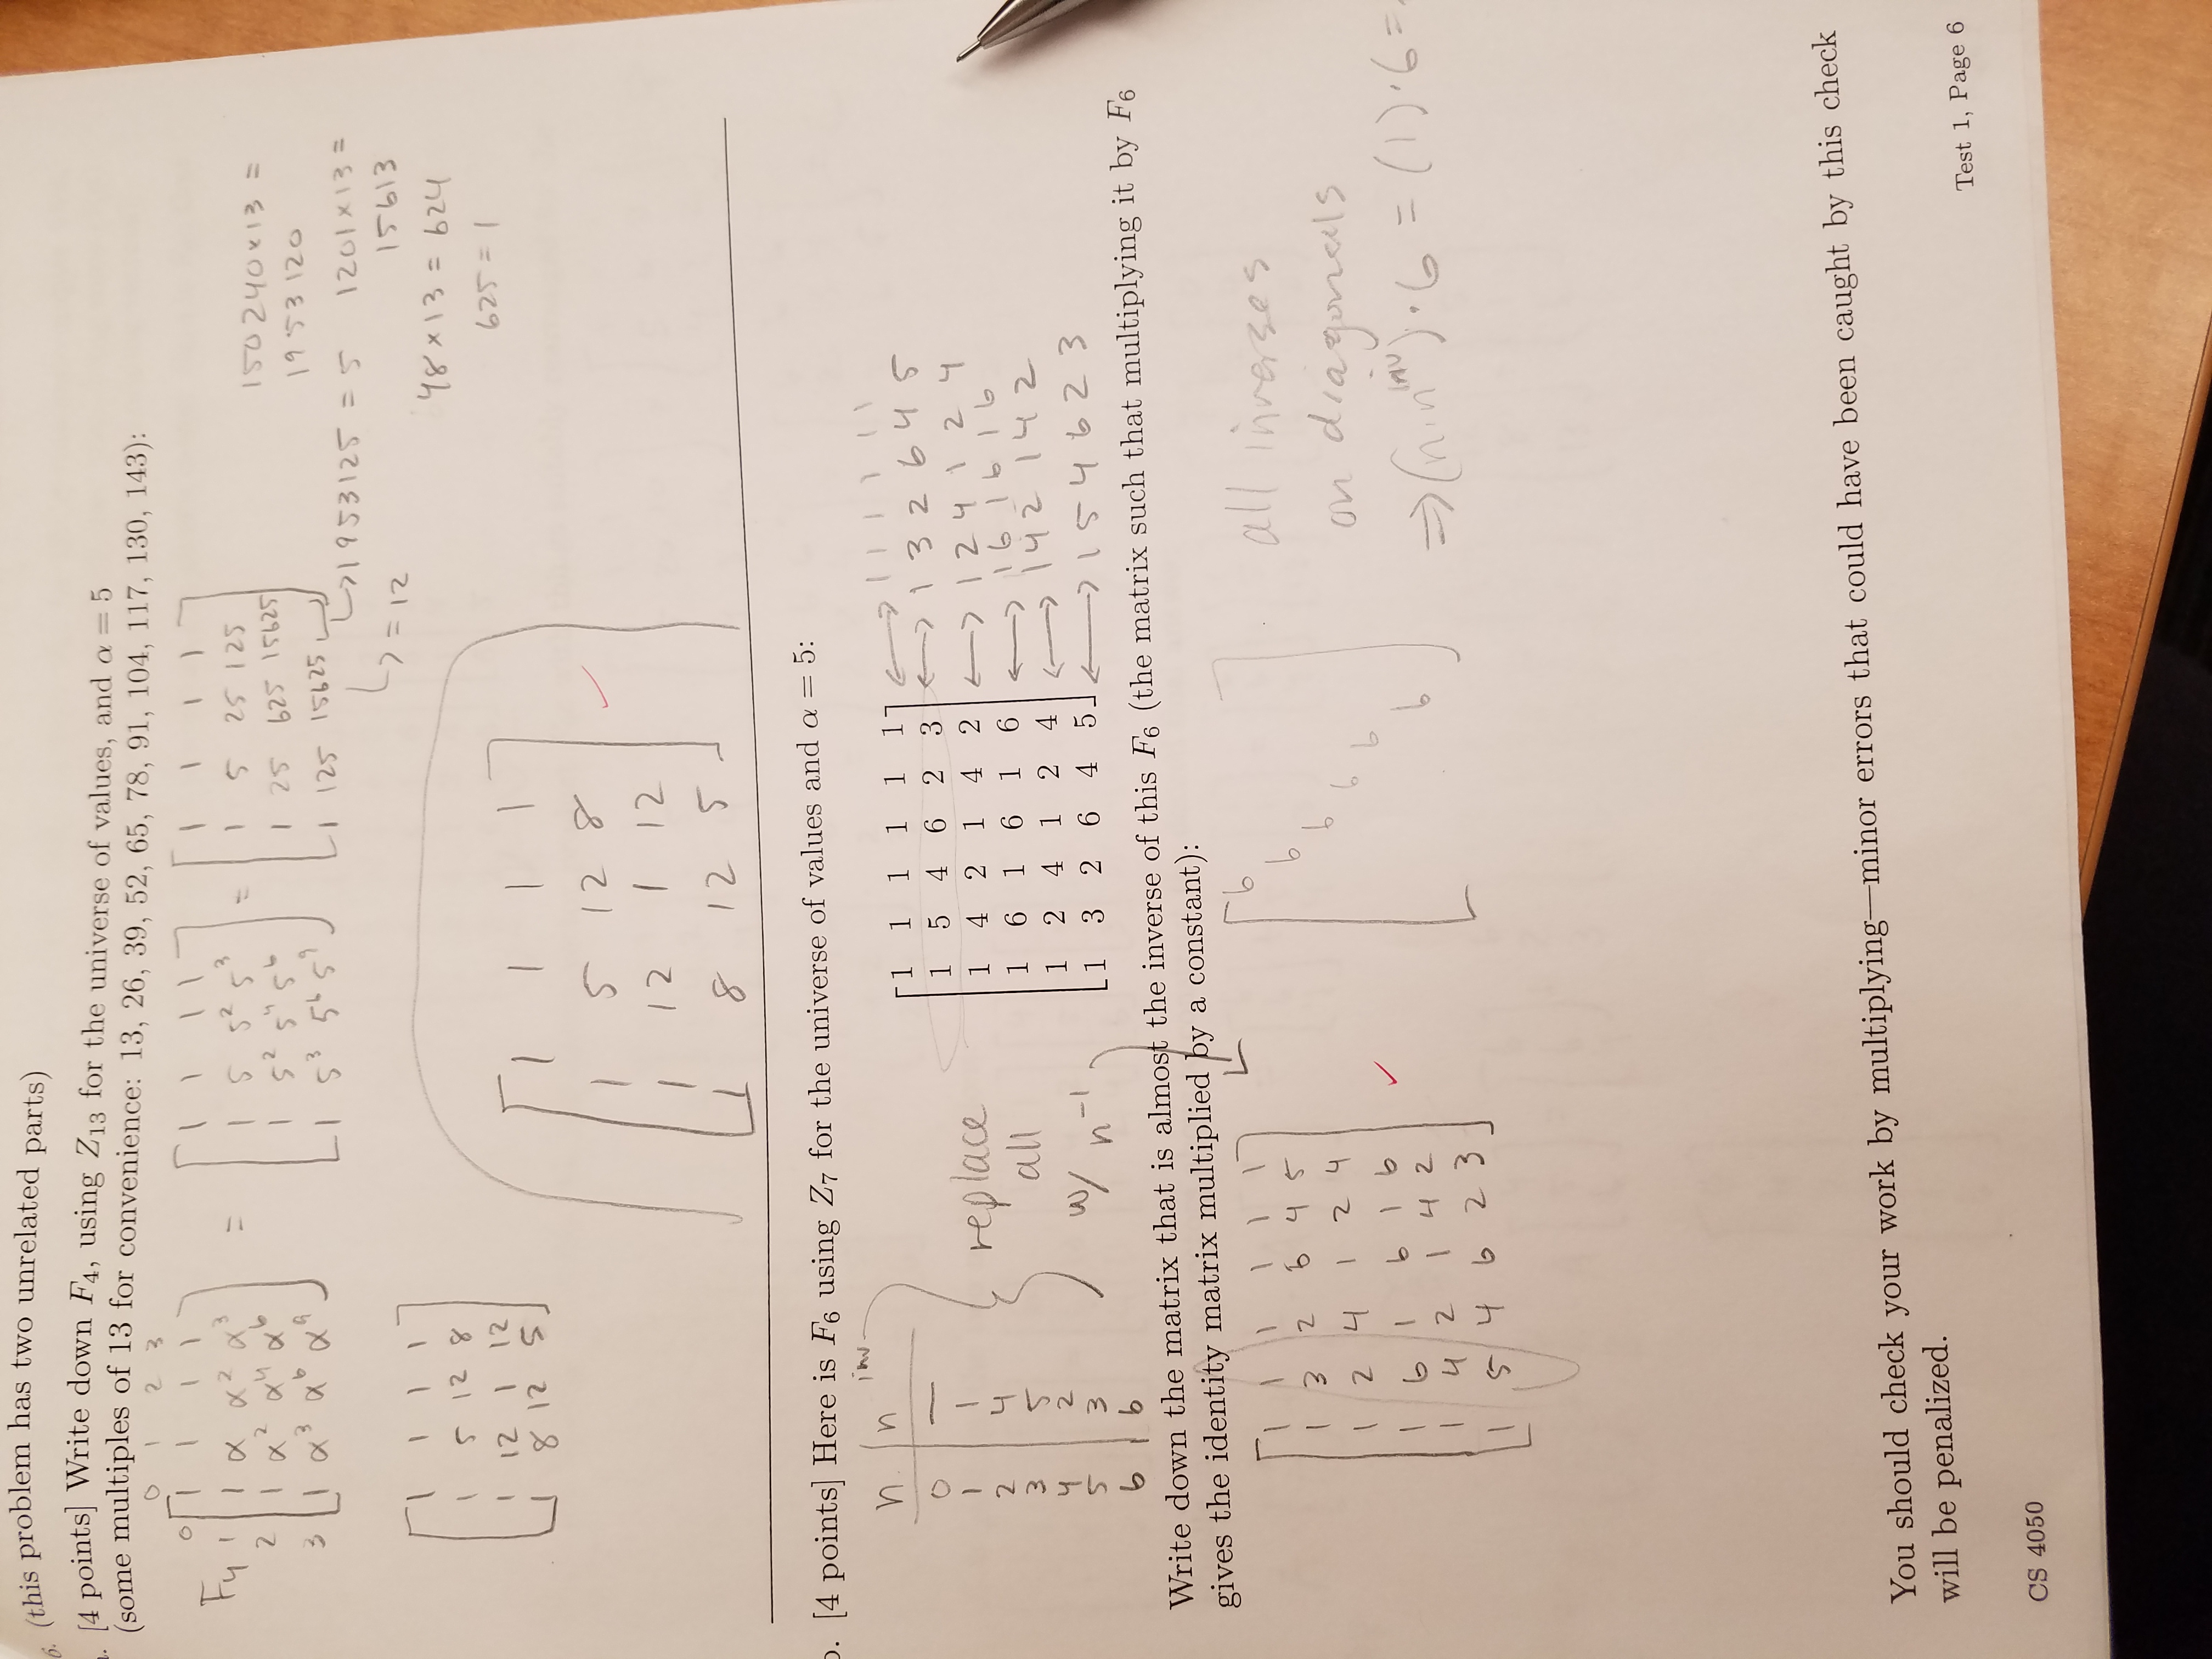 6. (this problem has two unrelated parts)
[4 points] Write down F4, using Z13 for the universe of values, and α = 5
(some multiples of 13 for convenience: 13, 26, 39, 52, 65, 78, 91, 104, 117, 130, 143):
0 1 2 3
F4
0 1 1 1 1
1 1 α α² α³
2 1 α² α⁴ α⁶
3 1 α³ α⁶ α⁹
=
1 1 1 1
1 5 5² 5³
1 5² 5⁴ 5⁶
1 5³ 5⁶ 5⁹
=
1 1 1 1
1 5 25 125
1 25 625 15625
1 125 15625
→1953125 = 5
→ = 12
150240×13 =
1953120
1201×13 =
15613
48×13 = 624
625 = 1
1 1 1 1
1 5 12 8
1 12 1 12
1 8 12 5
1 1 1 1
1 5 12 8
1 12 1 12
1 8 12 5
b. [4 points] Here is F6 using Z7 for the universe of values and α = 5:
n n inv
0 —
1 1
2 4
3 5
4 2
5 3
6 6
replace
all
w/ n⁻¹
1 1 1 1 1 1 ↔ 1 1 1 1 1 1
1 5 4 6 2 3 ↔ 1 3 2 6 4 5
1 4 2 1 4 2 ↔ 1 2 4 1 2 4
1 6 1 6 1 6 ↔ 1 6 1 6 1 6
1 2 4 1 2 4 ↔ 1 4 2 1 4 2
1 3 2 6 4 5 ↔ 1 5 4 6 2 3
Write down the matrix that is almost the inverse of this F6 (the matrix such that multiplying it by F6
gives the identity matrix multiplied by a constant):
1 1 1 1 1 1
1 3 2 6 4 5
1 2 4 1 2 4
1 6 1 6 1 6
1 4 2 1 4 2
1 5 4 6 2 3
6
6
6
6
6
6
all inverses
on diagonals
⇒(n·n inv)·6 = (1)·6=
You should check your work by multiplying—minor errors that could have been caught by this check
will be penalized.
Test 1, Page 6
CS 4050